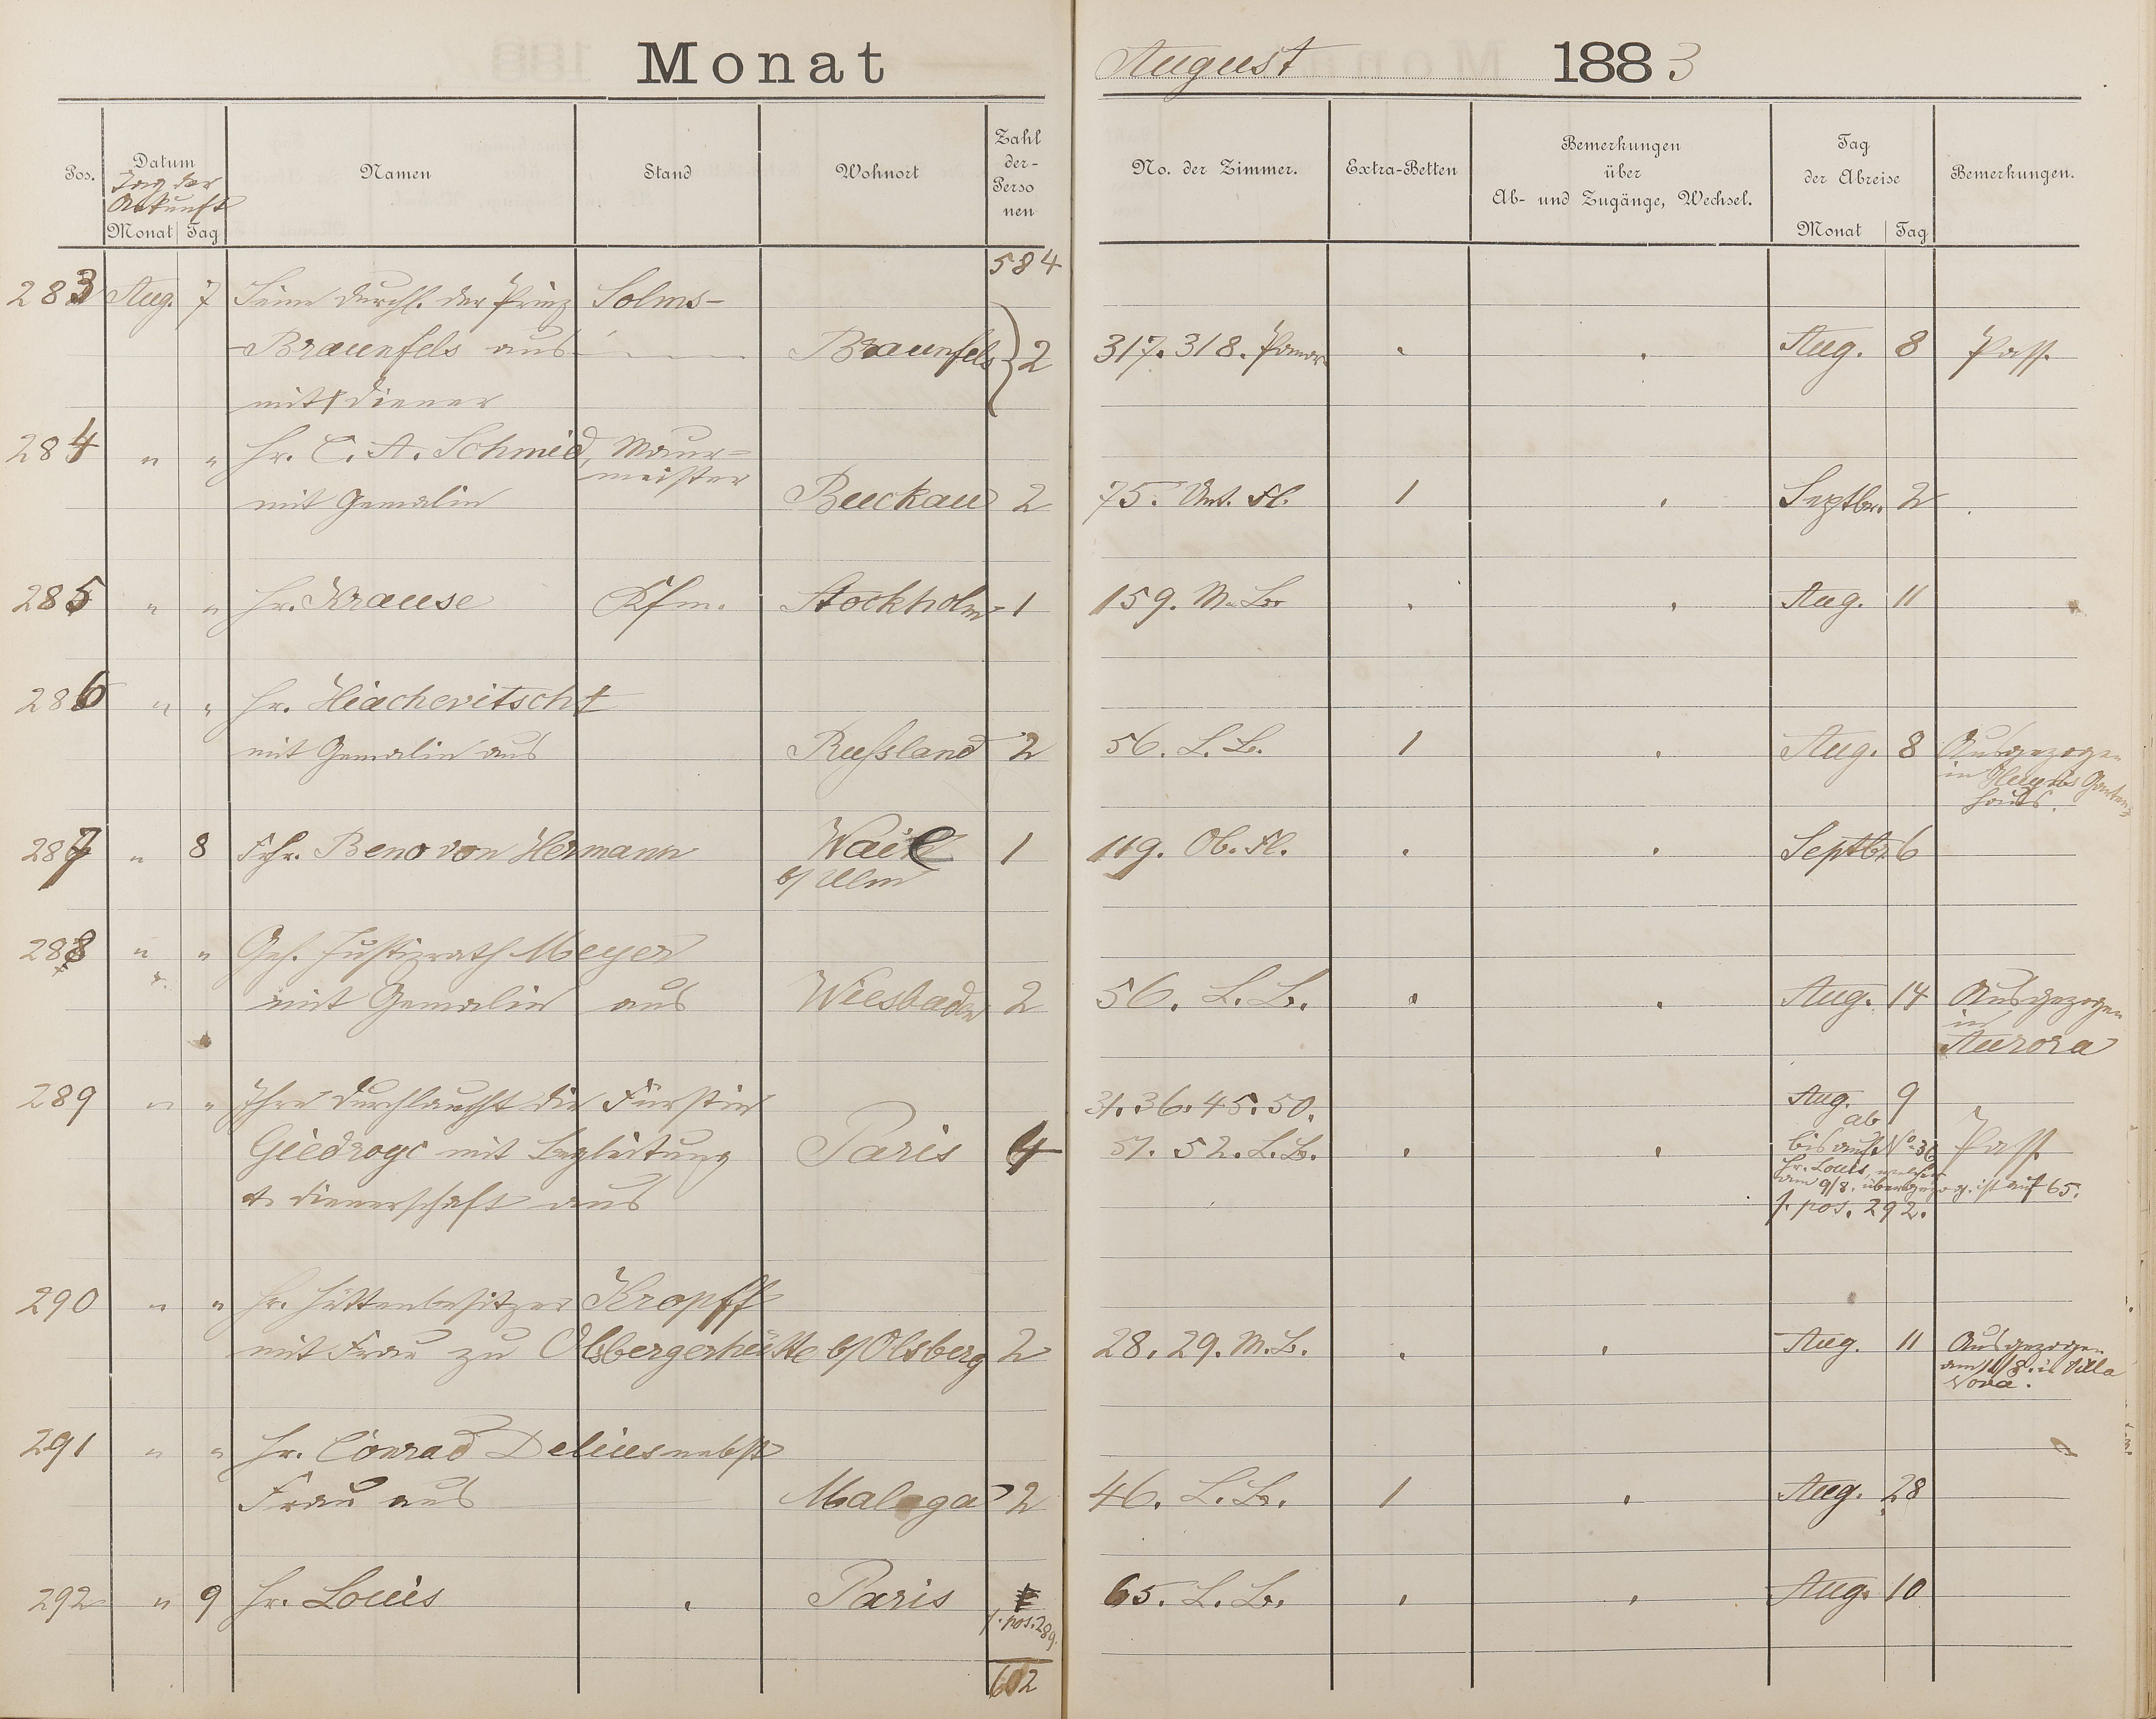 Monat August 1883
Pos. Datum Namen Stand Wohnort Zahl der Personen No. der Zimmer. Extra-Betten Bemerkungen über Ab- und Zugänge, Wechsel. Tag der Abreise Bemerkungen.
Tag der Ankunft
Monat Tag Monat Tag
584
283 Aug. 7 Seine Durchl. der Prinz Solms-
Braunfels aus Braunfels 2 317. 318. Aug. 8 Pass.
mit 1 Diener
284 " " Hr. C. A. Schmid, Maur-
meister
mit Gemalin Buckau 2 75. Unt. Fl. 1 Septbr. 2
285 " " Hr. Krause Kfm. Stockholm 1 159. M. Br. Aug. 11
286 " " Hr.
mit Gemalin aus Russland 2 56. L. B. 1 Aug. 8 Ausgezogen
in
haus.
287 " 8 Frhr. Beno von Hermann Wail 1 119. Ob. Fl. Septbr. 6
b/ Ulm
288 " " Geh. Justizrath Meyer
mit Gemalin aus Wiesbaden 2 56. L. B. Aug. 14 Ausgezogen
in
Aurora
289 " " Ihre Durchlaucht die Fürstin 31. 36. 45. 50. Aug. 9
ab
Giedroyc mit Begleitung Paris 4 51. 52. L. B. bis auf No. 36 Pass.
Hr. Louis, welcher
am 9/8. übergezog. ist auf 65.
& Dienerschaft aus f. pos. 292.
290 " " Hr. Hüttenbesitzer Kropff
mit Frau zu Olsbergerhütte b/ Olsberg 2 28. 29. M. B. Aug. 11 Ausgezogen
am 11/8. in Villa
Nova.
291 " " Hr. Conrad Delius nebst
Frau aus Malaga 2 46. L. B. 1 Aug. 28
292 " 9 Hr. Louis Paris 65. L. B. Aug. 10
f. pos. 289.
602